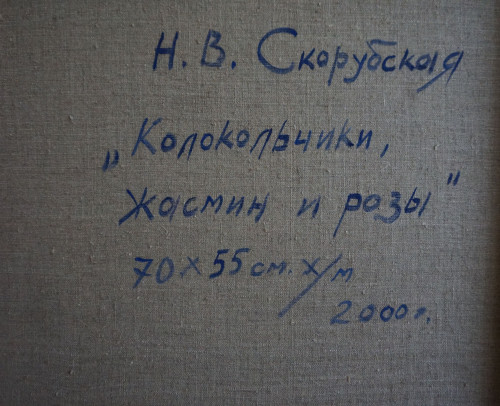 Н. В. Скорубская
„Колокольчики,
жасмин и розы"
70 x 55 см. х/м
2000 г.